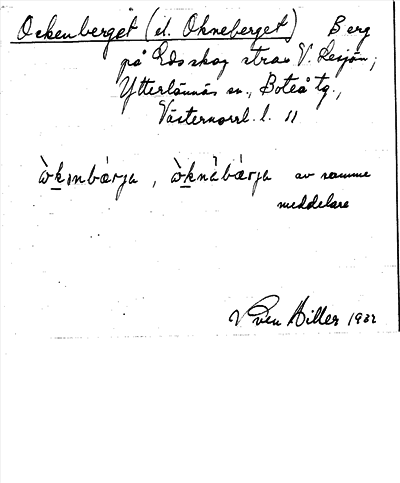 Ockenberget (el. Okneberget) Berg
på Eds skog strax V. Lesjön,
Ytterlännäs sn, Boteå tg.,
Västernorrl. l. 11
ὼkɩnbǽrja, ὼknàbǽrja av samme
meddelare
Sven Hiller 1932